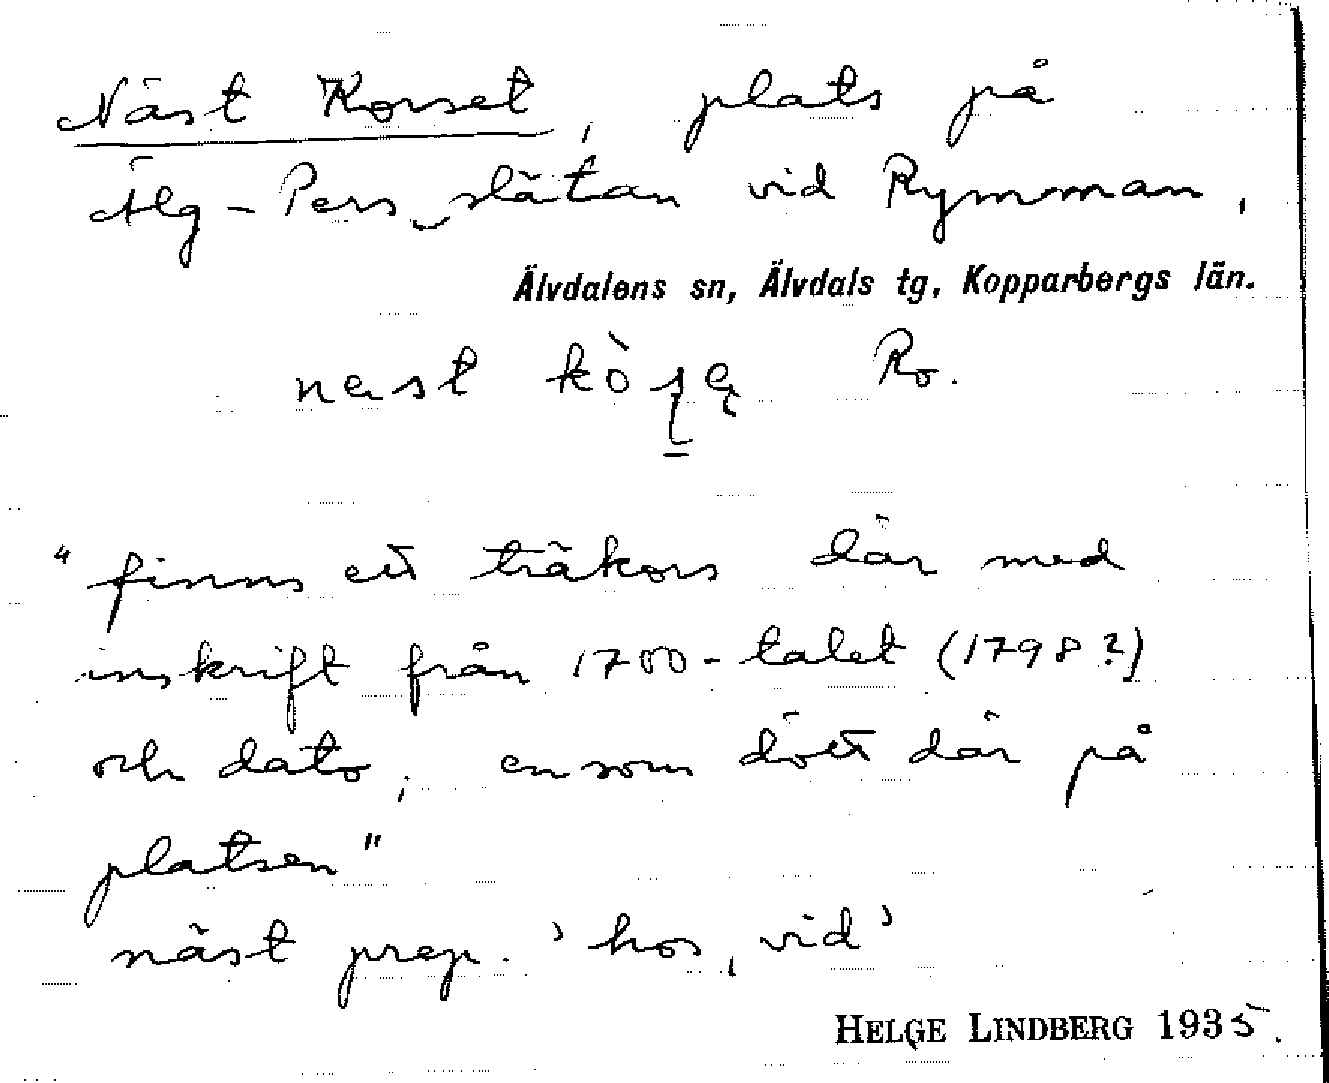 Näst Korset, plats på
Älg-Pers slätan vid Rymman,
Älvdalens sn, Älvdals tg, Kopparbergs län.
Ro.
"finns ett träkors där med
inskrift från 1700-talet (1798?)
och dato, en som dött där på
platsen"
näst prep. 'hos, vid'
HELGE LINDBERG 1935.